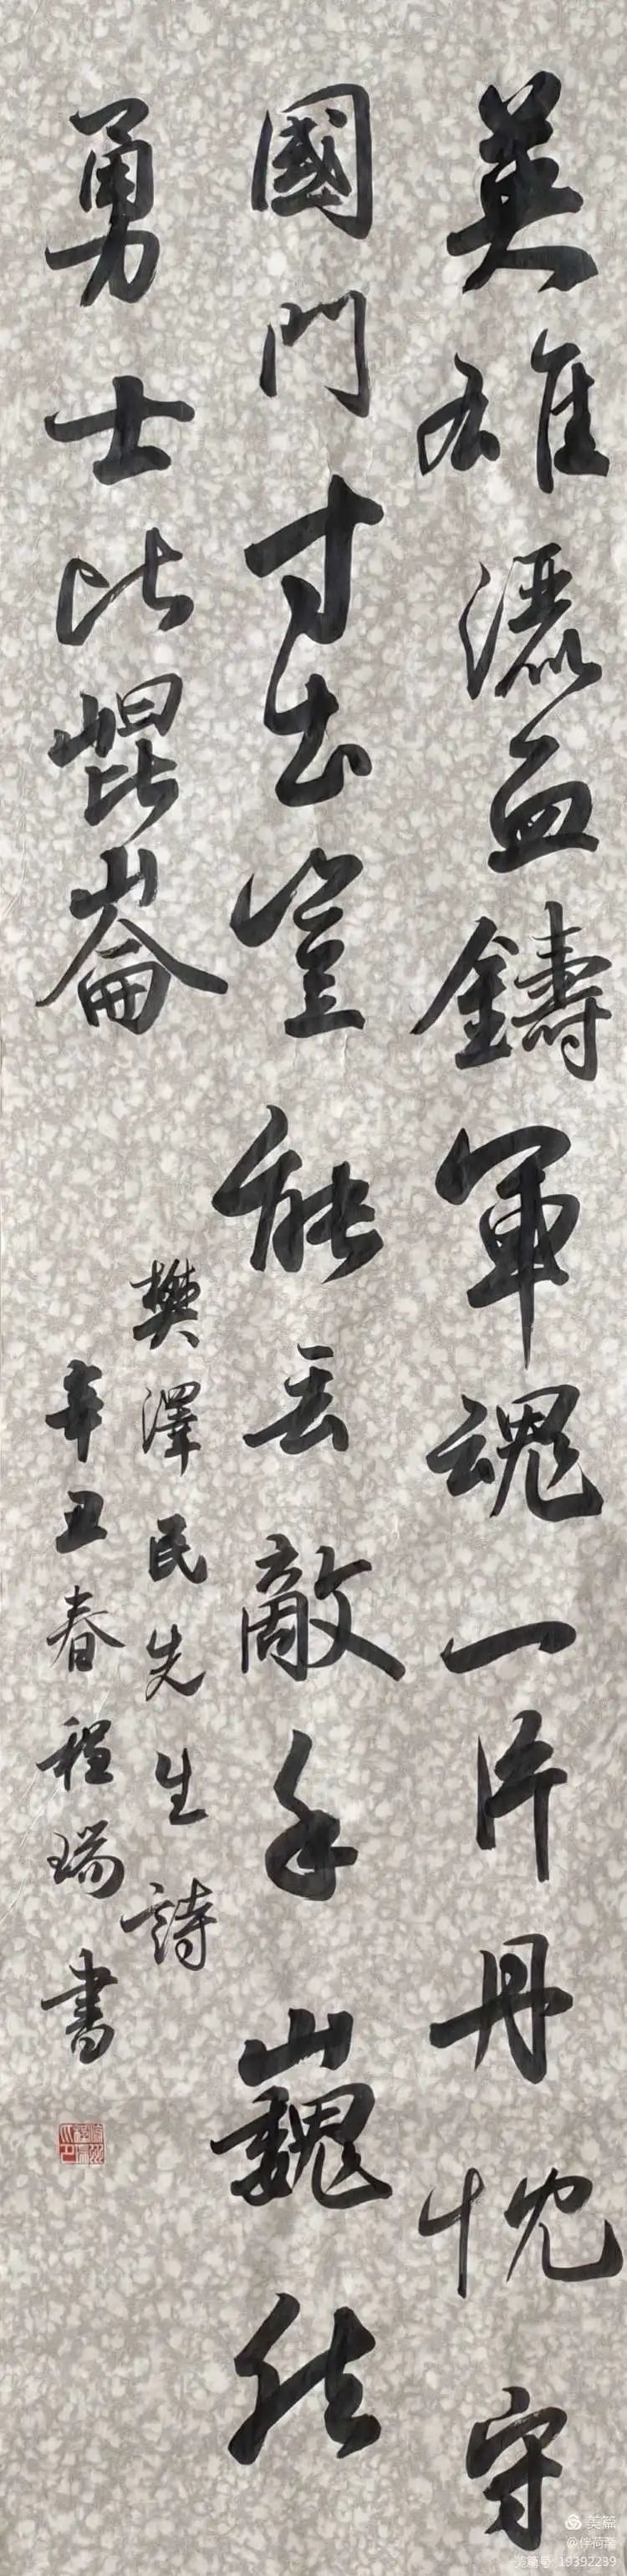 英雄灑血鑄軍魂一片丹忱守
國門寸土豈能丟敵手巍然
勇士比崐崙
樊澤民先生詩
辛丑春程瑞書
美篇
美篇号 19392239